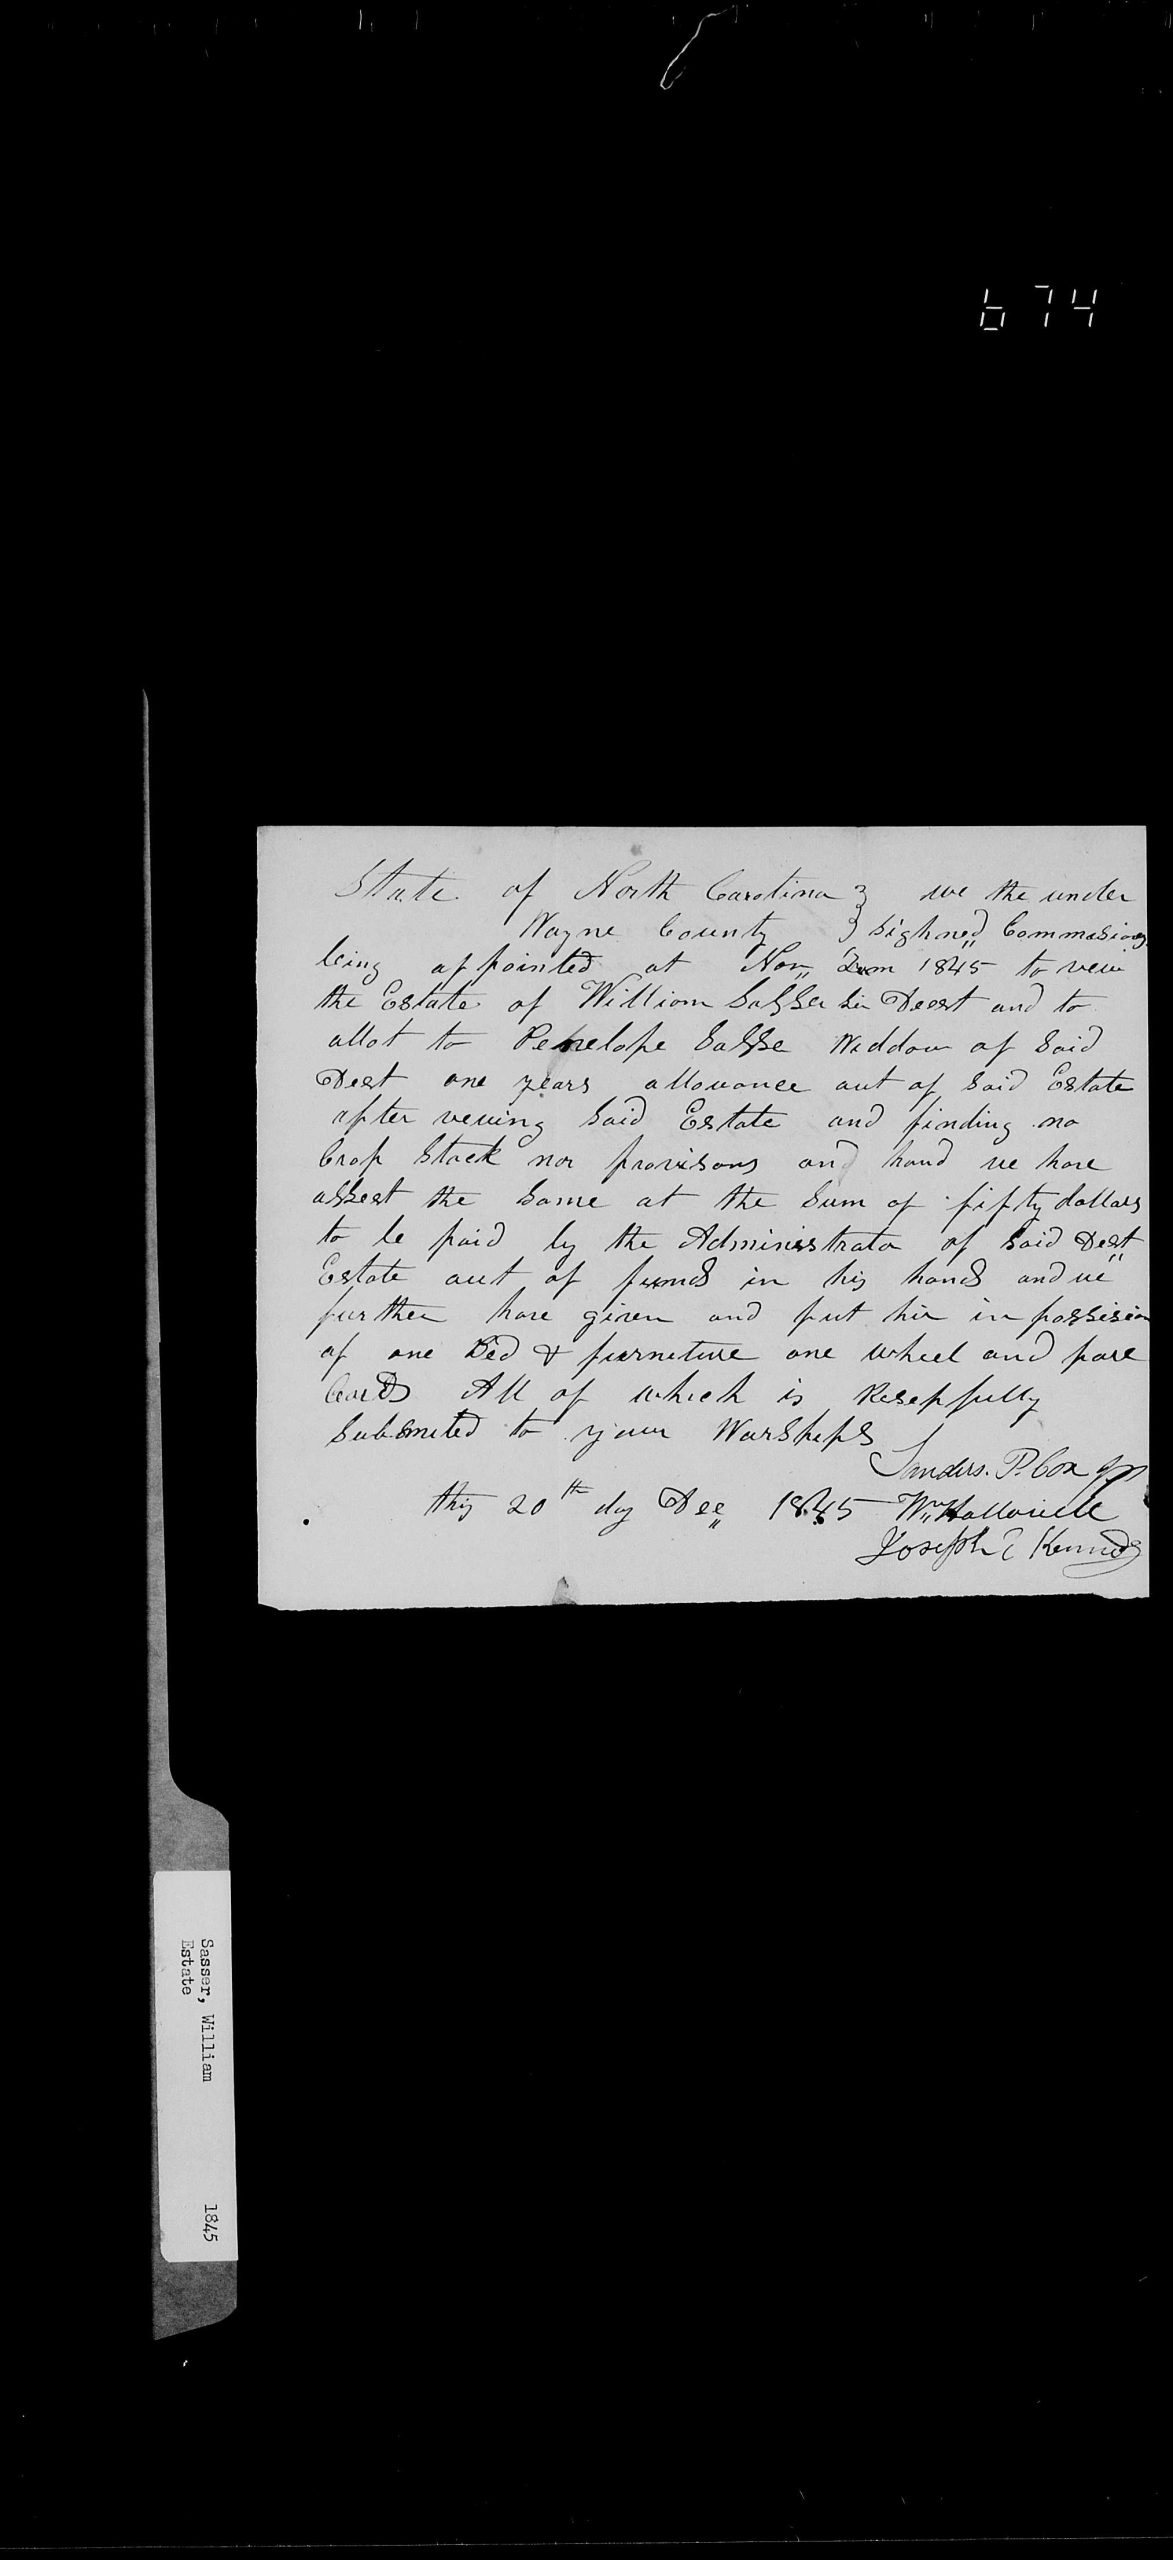 674
State of North Carolina } we the under
Wayne County } sighned Commasions
being appointed at Nov 1845 to veiw
the Estate of William Sasser Sir Decst and to
allot to Penelope Sasse Widdow of Said
Dest one years allowance out of Said Estate
after vewing Said Estate and finding no
Crop Stock nor provisons and hand we have
assest the Same at the Sum of fifty dollars
to be paid by the Administrator of Said Dest
Estate out of funds in his hands and we
further have given and put hir in possision
of one Bed & furneture one wheel and pare
Cards All of which is Resepfully
Submited to your Worsheps
Sanders. P. Cox
this 20th day Dec 1845 Wm Hollowell
Joseph E Kennedy
Sasser, William 1845
Estate